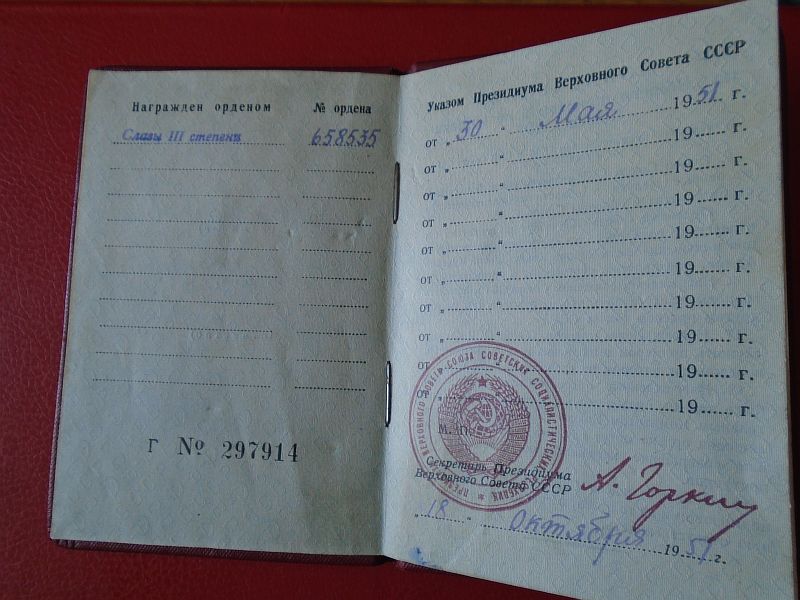 Награжден орденом № ордена
Славы III степени 658535
Г № 297914
Указом Президиума Верховного Совета СССР
от „ 30 “ Мая 1951 г.
от „ “ 19 г.
от „ “ 19 г.
от „ “ 19 г.
от „ “ 19 г.
от „ “ 19 г.
от „ “ 19 г.
от „ “ 19 г.
от „ “ 19 г.
от „ “ 19 г.
М. П.
СОЮЗА СОВЕТСКИХ СОЦИАЛИСТИЧЕСКИХ
ВЕРХОВНОГО СОВЕТА
Секретарь Президиума
Верховного Совета СССР
А. Горкин
„ 18 “ октября 1951 г.